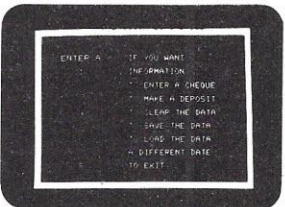 ENTER A IF YOU WANT
INFORMATION
ENTER A CHEQUE
MAKE A DEPOSIT
CLEAR THE DATA
SAVE THE DATA
LOAD THE DATA
A DIFFERENT DATE
TO EXIT